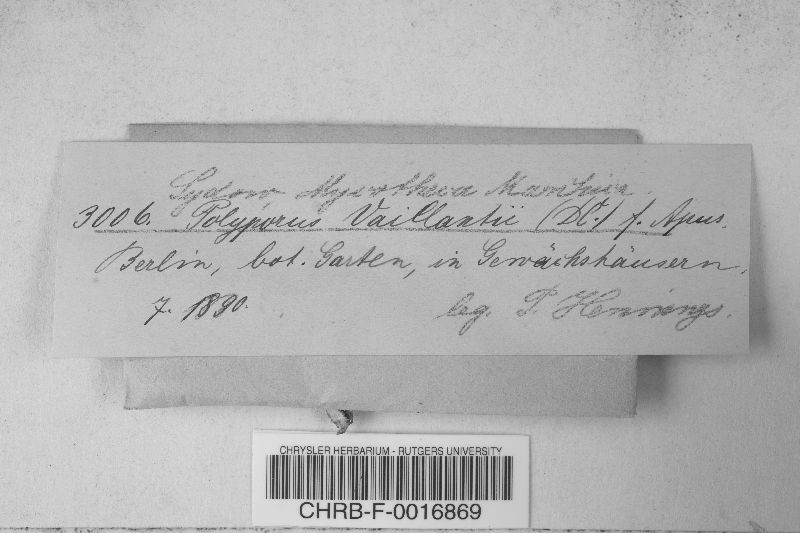 Sydow Mycotheca Marchica.
3006. Polyporus Vaillantii (DC.) f. Apus.
Berlin, bot. Garten, in Gewächshäusern.
7. 1890. leg. P. Hennings.
CHRYSLER HERBARIUM - RUTGERS UNIVERSITY
CHRB-F-0016869